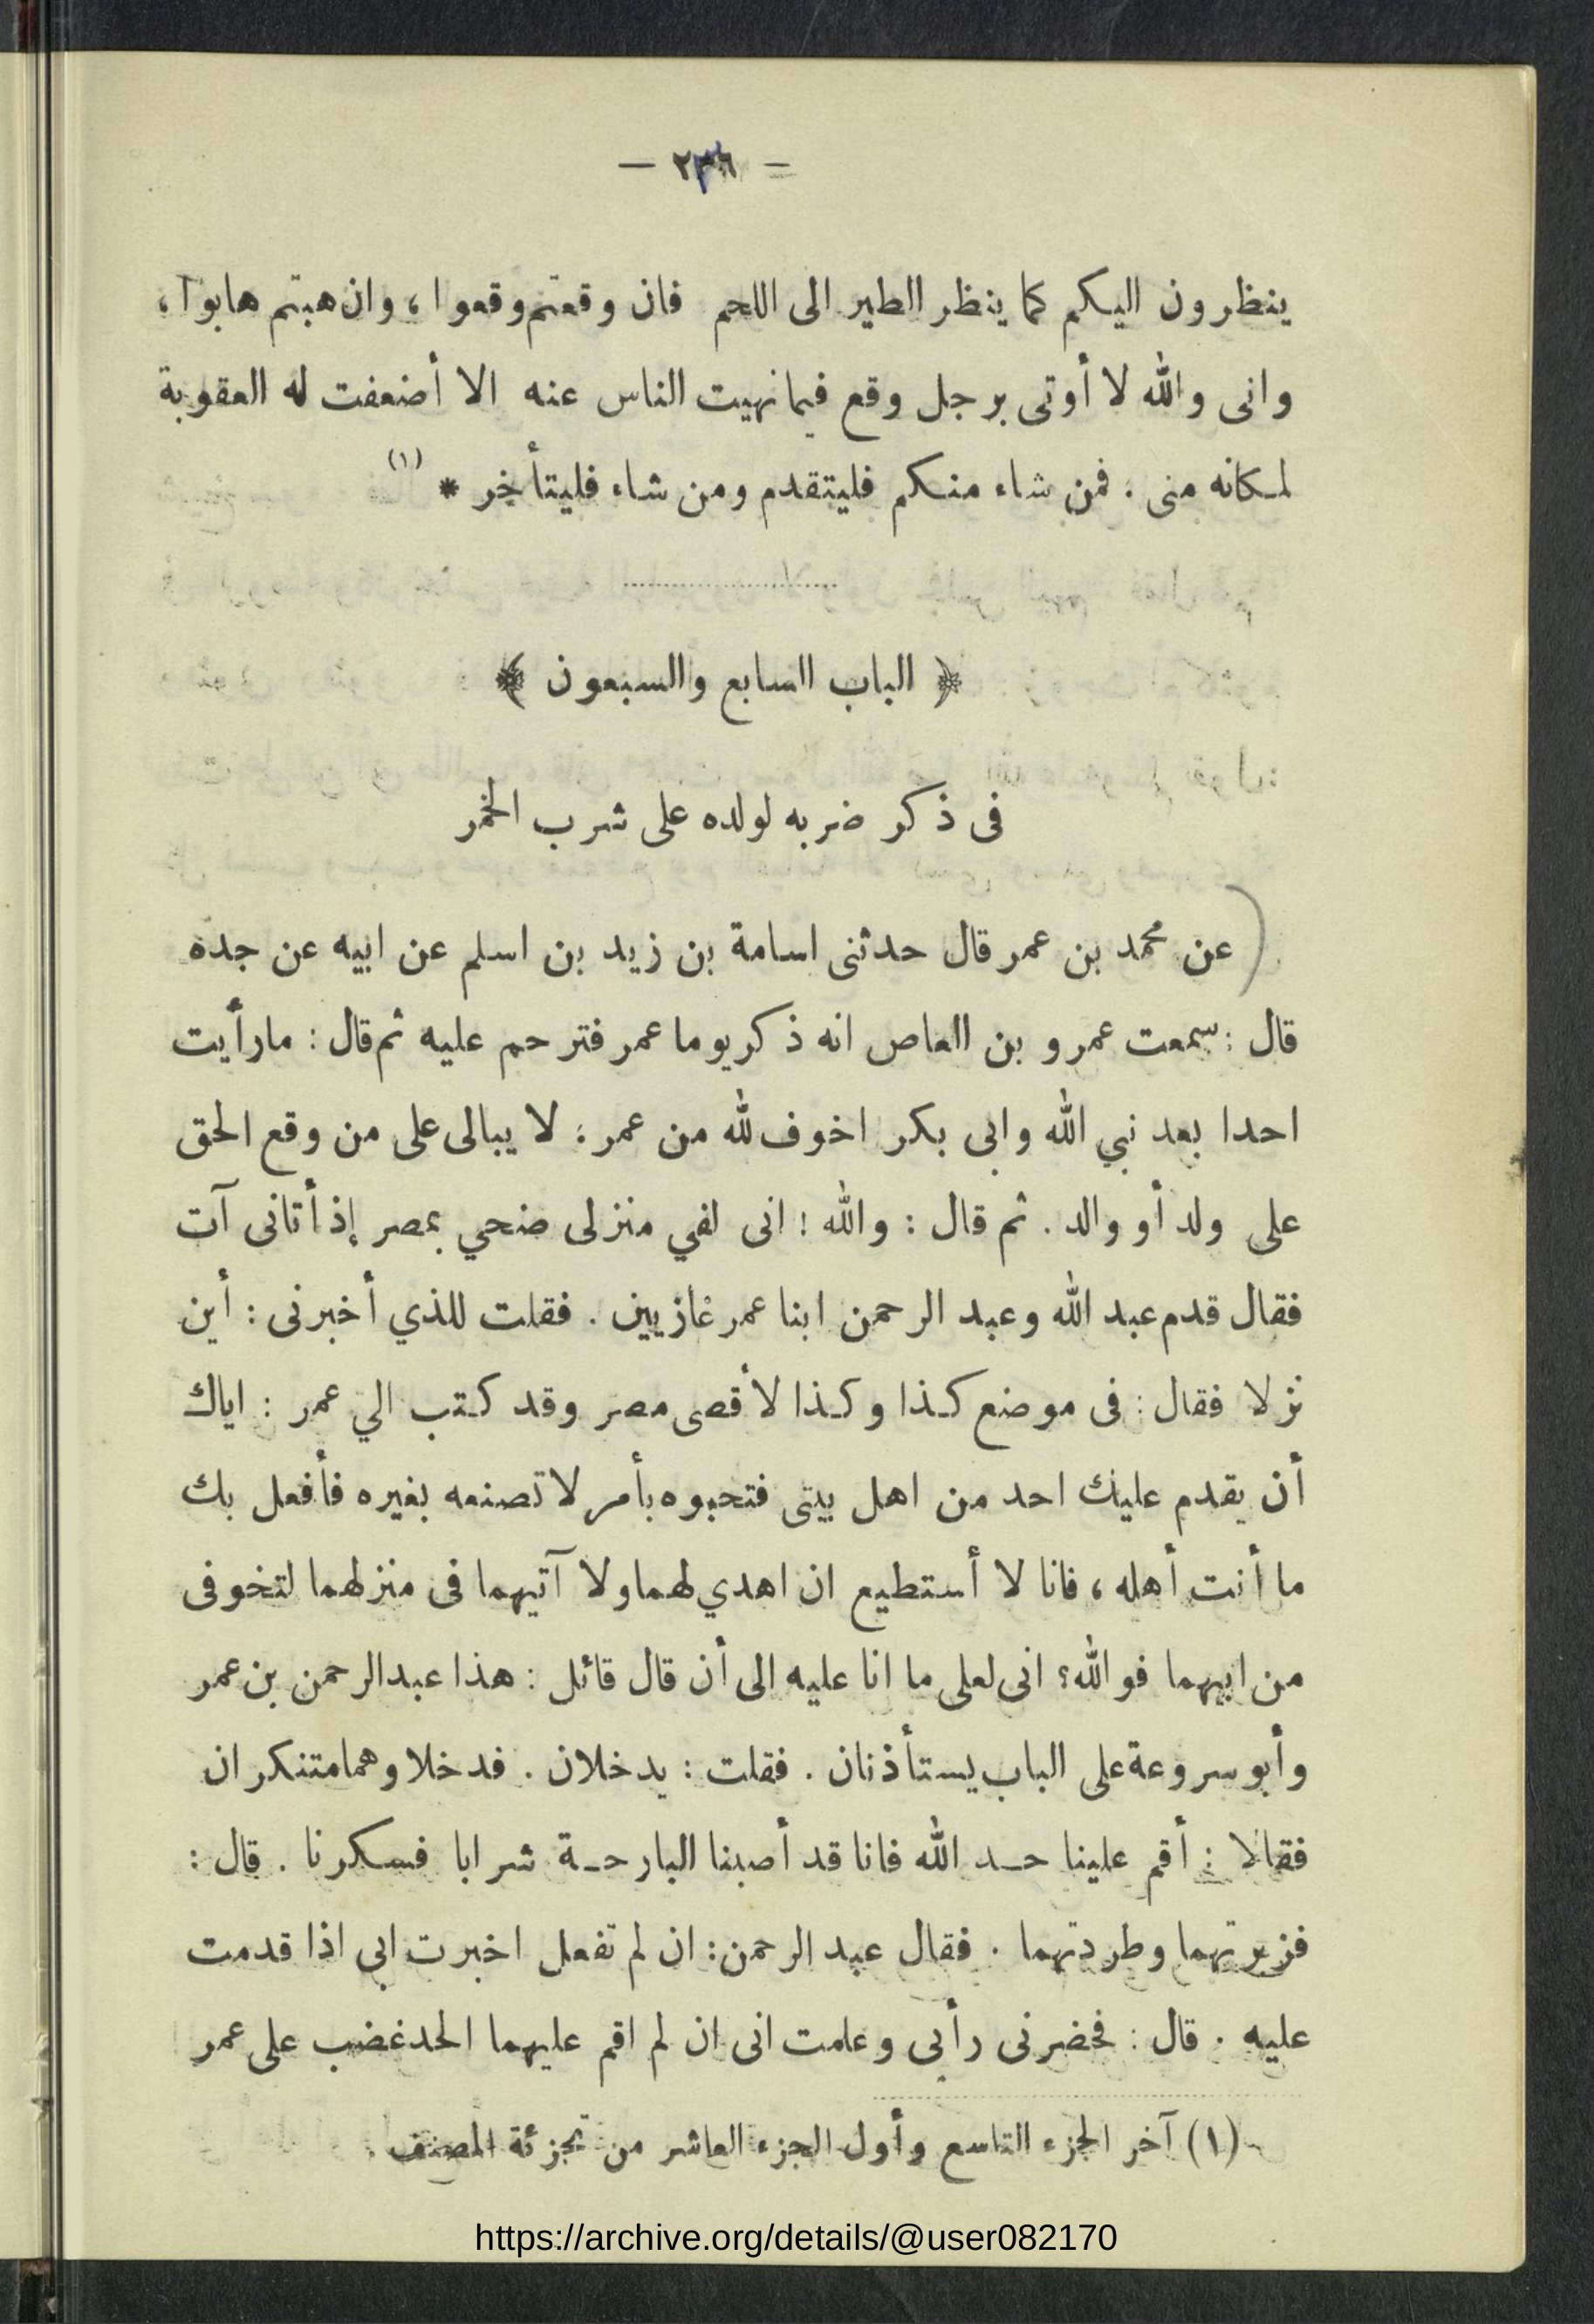 — ٢٣٦ —
ينظرون اليكم كما ينظر الطير الى اللحم فان وقعتم وقعوا ، وان هبتم هابوا ،
وانى والله لا أوتى برجل وقع فيما نهيت الناس عنه الا أضعفت له العقوبة
لمكانه منى . فمن شاء منكم فليتقدم ومن شاء فليتأخر * (١)
﴿ الباب السابع والسبعون ﴾
فى ذكر ضربه لولده على شرب الخمر
عن محمد بن عمر قال حدثنى اسامة بن زيد بن اسلم عن ابيه عن جده
قال : سمعت عمرو بن العاص انه ذكر يوما عمر فترحم عليه ثم قال : ما رأيت
احدا بعد نبي الله وابى بكر اخوف لله من عمر : لا يبالى على من وقع الحق
على ولد أو والد . ثم قال : والله ! انى لفي منزلى ضحي بمصر إذ أتانى آت
فقال قدم عبد الله وعبد الرحمن ابنا عمر غازيين . فقلت للذي أخبرنى : أين
نزلا فقال : فى موضع كذا وكذا لأقصى مصر وقد كتب الي عمر : اياك
أن يقدم عليك احد من اهل بيتى فتحبوه بأمر لا تصنعه بغيره فأفعل بك
ما أنت أهله ، فانا لا أستطيع ان اهدي لهما ولا آتيهما فى منزلهما لتخوفى
من ابيهما فو الله ؟ انى لعلى ما انا عليه الى أن قال قائل : هذا عبد الرحمن بن عمر
وأبو سروعة على الباب يستأذنان . فقلت : يدخلان . فدخلا وهما متنكران
فقالا : أقم علينا حد الله فانا قد أصبنا البارحة شرابا فسكرنا . قال :
فزبرتهما وطردتهما . فقال عبد الرحمن : ان لم تفعل اخبرت ابى اذا قدمت
عليه . قال : فحضرنى رأيى وعلمت انى ان لم اقم عليهما الحد غضب على عمر
(١) آخر الجزء التاسع وأول الجزء العاشر من تجزئة المصنف .
https://archive.org/details/@user082170